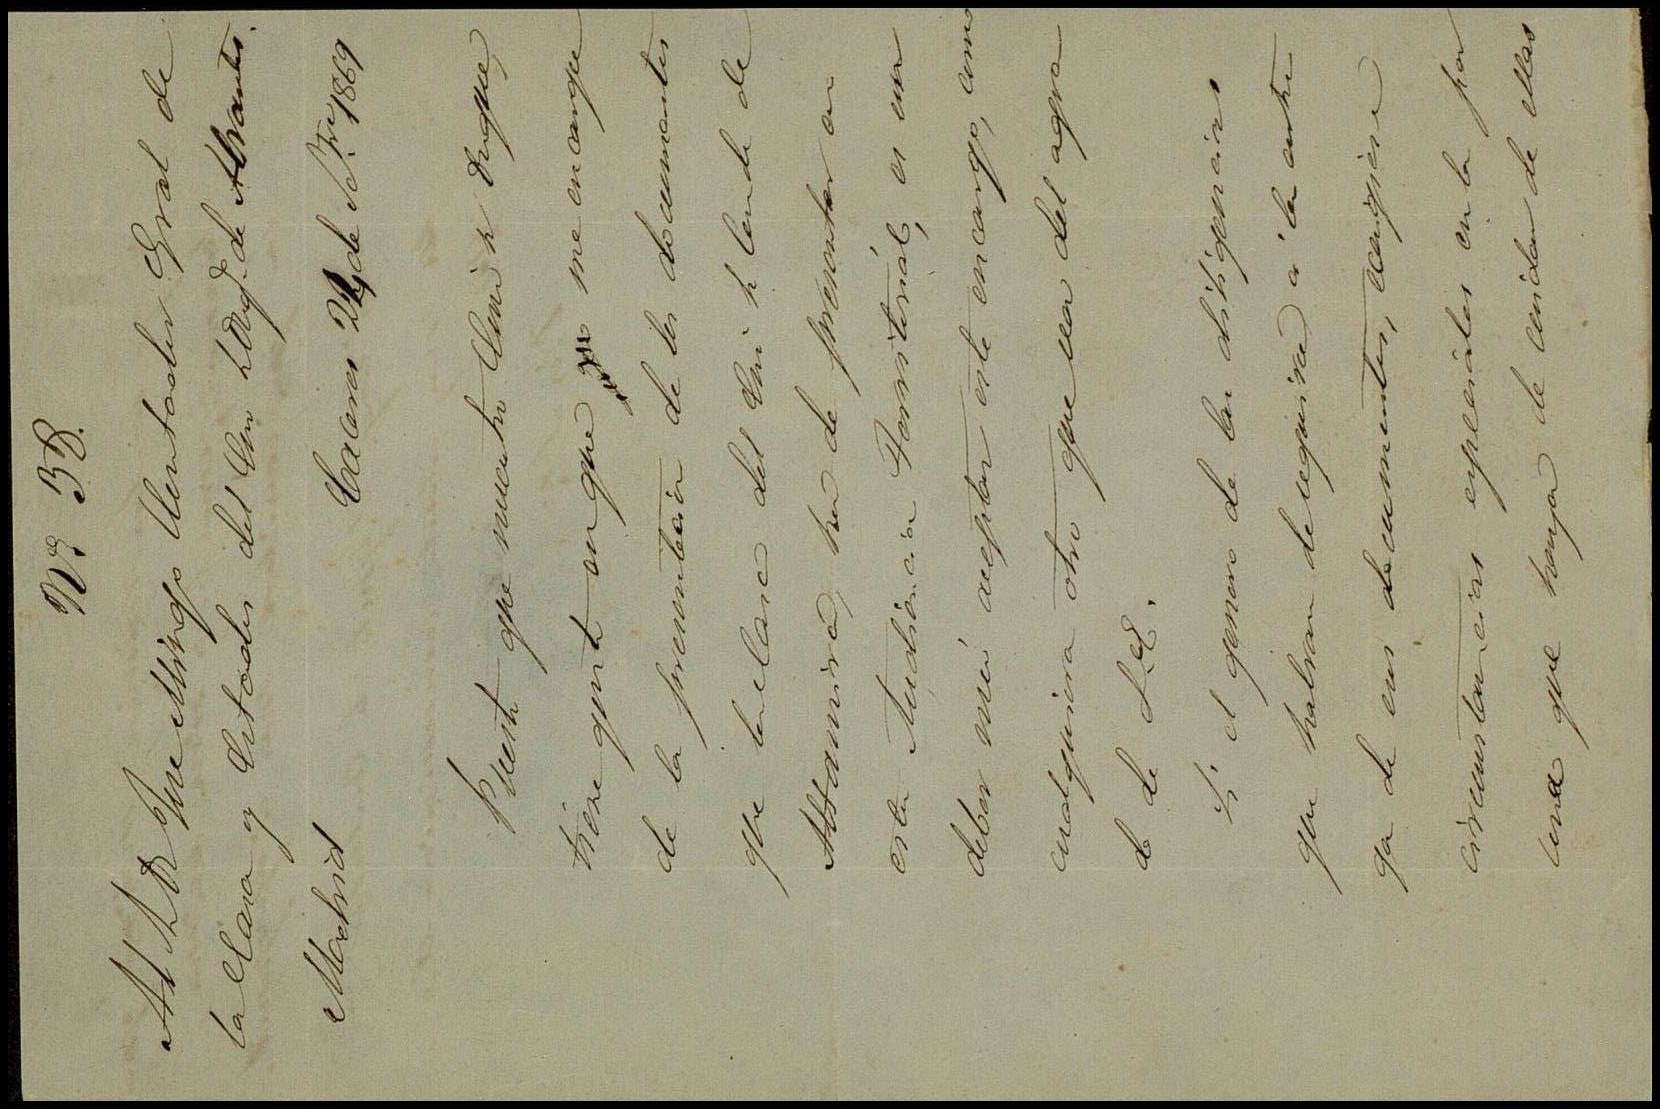 Nº 32
Al Sr Dn Domingo Contador Gral de
la Casa y Estados del Emo Sr Duq.e de Abrantes.
Madrid Caceres 24 de Nbre 1869
Puesto que nuestro Emo Sr Duque,
tiene gusto en que me encargue
de la presentacion de los documentos
que la clase del Emo Sr Conde de
Altamira, ha de presentar en
esta Audiencia Territorial, es un
deber mio aceptar este encargo, como
cualquiera otro que sea del agrado
de S.E.
Si el genero de las diligencias
que habran de seguirse á la entre
ga de esos documentos, exigiese
circunstancias especiales en la per
sona que haya de cuidar de ellas